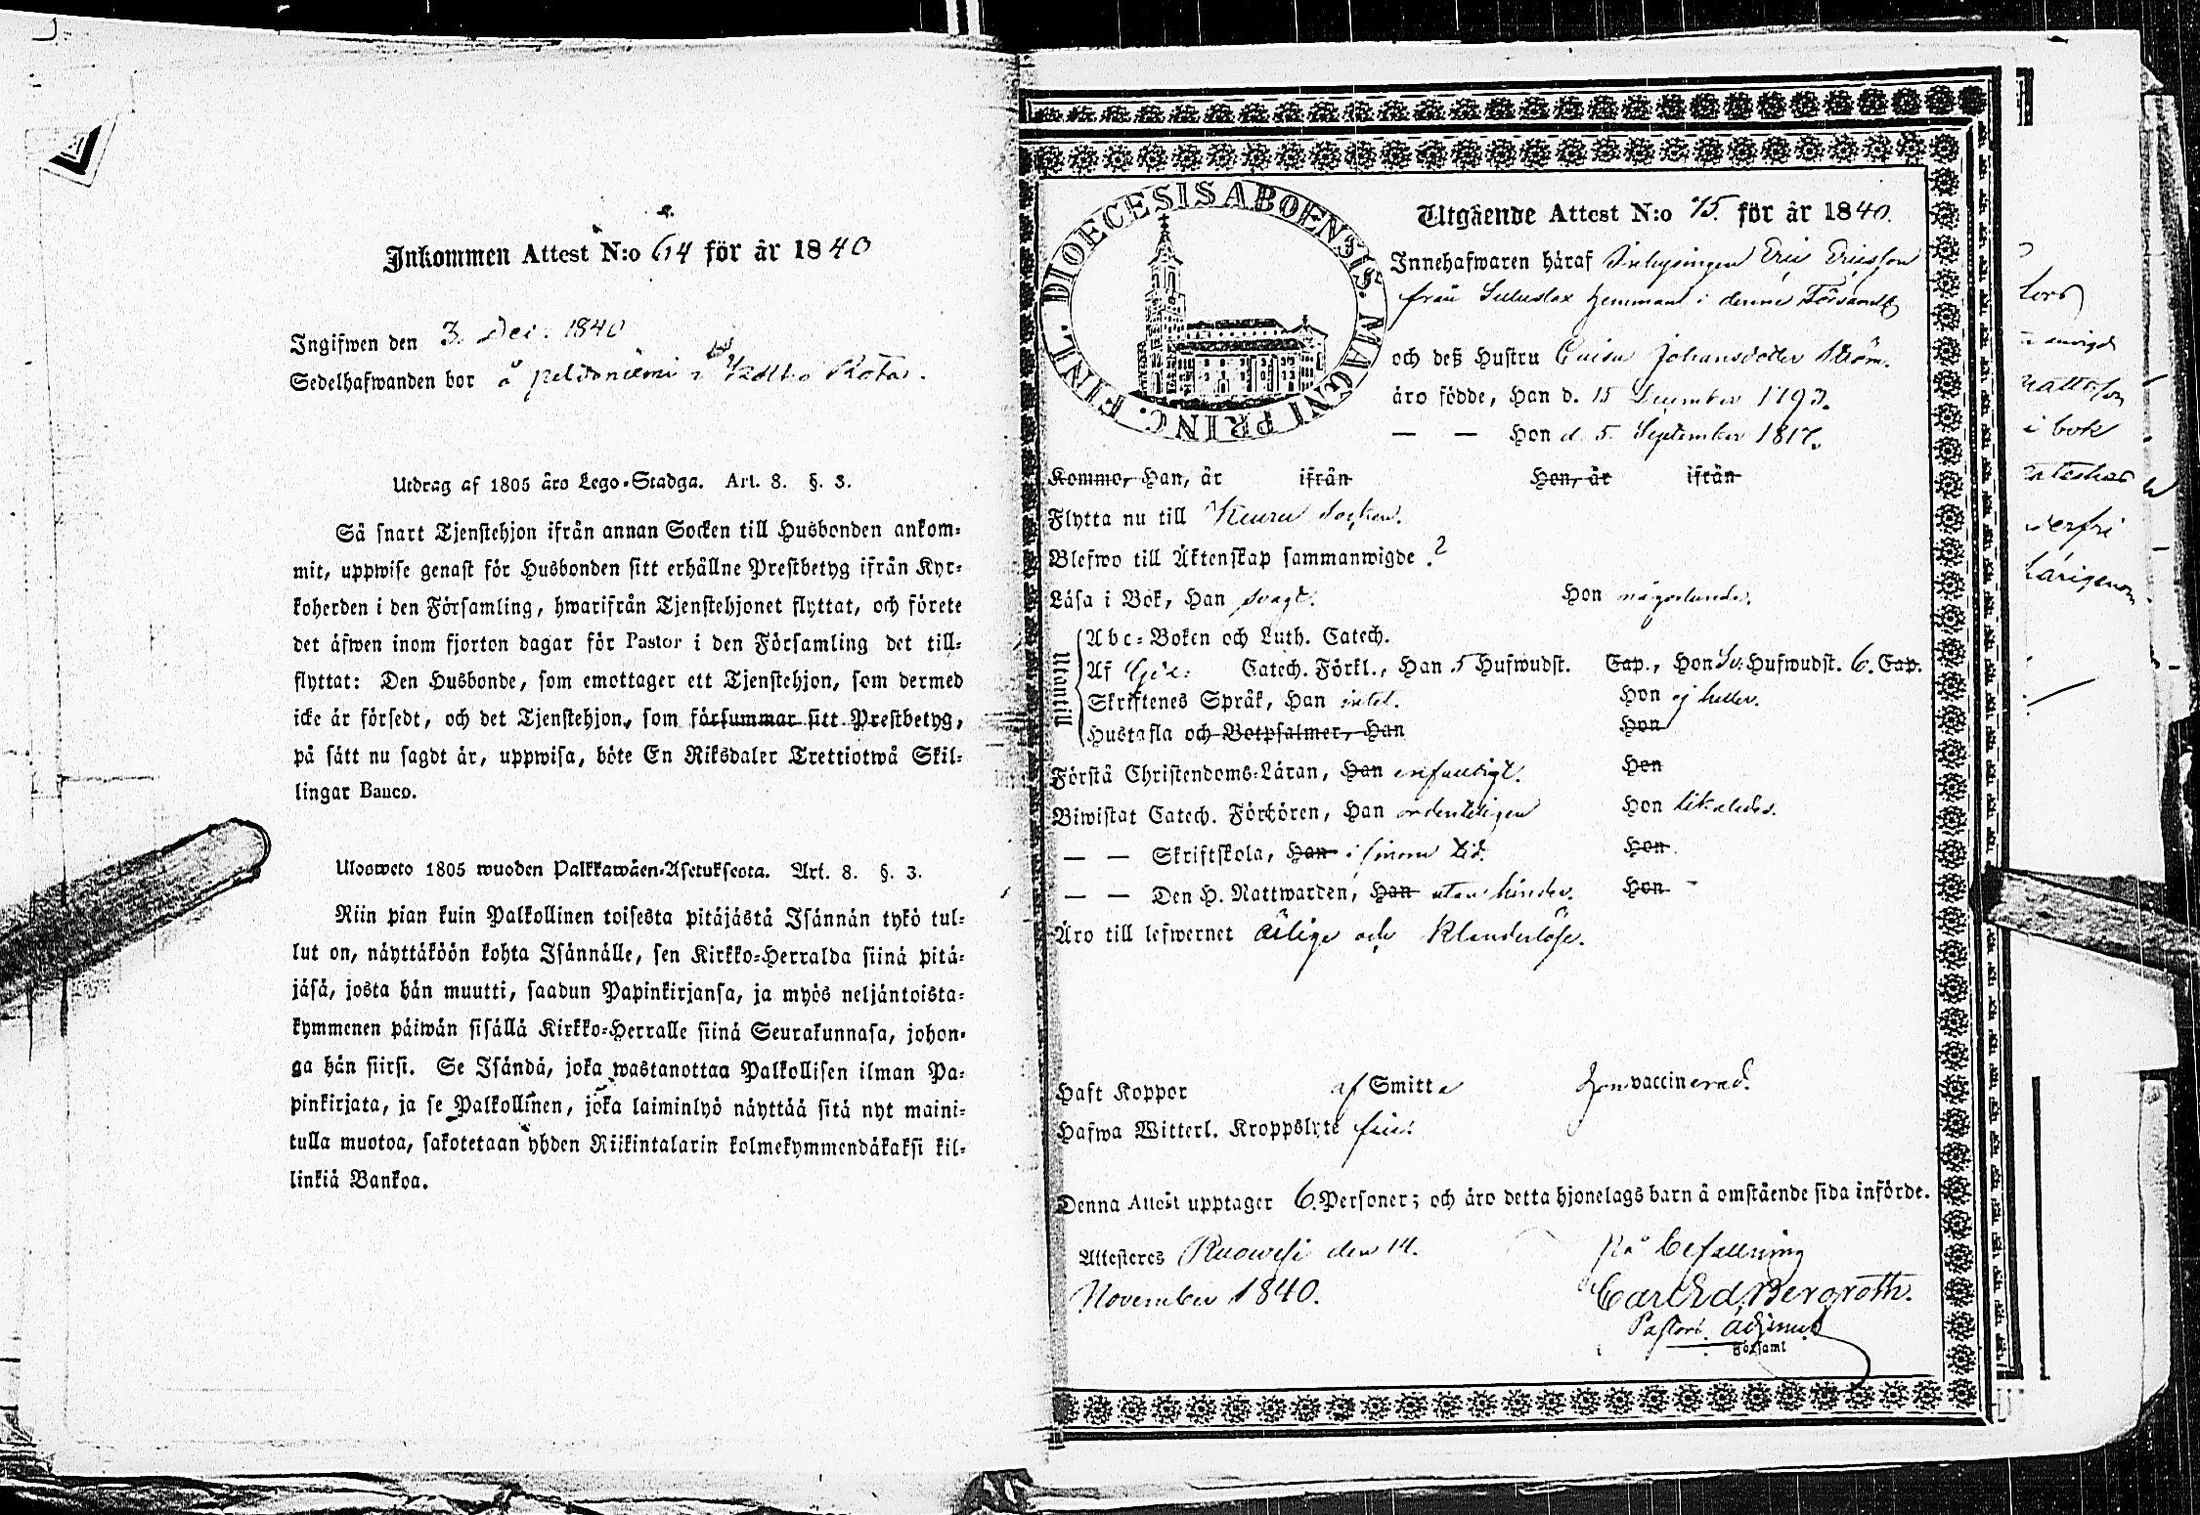 Inkommen Attest N:o 614 för år 1840
Ingifwen den 3. Dec. 1840
Sedelhafwanden bor å Peldoniemi
Utdrag af 1805 åro Lego-Stadga. Art. 8. §. 3.
Så snart Tjenstehjon ifrån annan Socken till Husbonden ankom-
mit, uppwise genast för Husbonden sitt erhållne Prestbetyg ifrån Kyr-
koherden i den Församling, hwarifrån Tjenstehjonet flyttat, och förete
det äfwen inom fjorton dagar för Pastor i den Församling det till-
flyttat: Den Husbonde, som emottager ett Tjenstehjon, som dermed
icke är försedt, och det Tjenstehjon, som försummar sitt Prestbetyg,
på sätt nu sagdt är, uppwisa, böte En Riksdaler Trettiotwå Skil-
lingar Banco.
Ulosweto 1805 wuoden Palkkawäen-Asetuksesta. Art. 8. §. 3.
Niin pian kuin Palkollinen toisesta pitäjästä Isännän tykö tul-
lut on, näyttäköön kohta Isännälle, sen Kirkko-Herralda siinä pitä-
jäsä, josta hän muutti, saadun Papinkirjansa, ja myös neljäntoista-
kymmenen päiwän sisällä Kirkko-Herralle siinä Seurakunnasa, johon-
ga hän siirsi. Se Isändä, joka wastanottaa Palkollisen ilman Pa-
pinkirjata, ja se Palkollinen, joka laiminlyö näyttää sitä nyt maini-
tulla muotoa, sakotetaan yhden Riikintalarin kolmekymmendäkaksi kil-
linkiä Bankoa.
DIOECESIS ABOENSIS. MAGNI PRINC. FINL.
Utgående Attest N:o 75. för år 1840.
Innehafwaren häraf Inhysingen Eric Ericsson
från hemmant i denne Församl
och deß Hustru Caisa Johansdotter Ström.
äro födde, Han d. 15 December 1793.
— — Hon d. 5. September 1817.
Kommo, Han, år ifrån Hon, år ifrån
Flytta nu till Keuru Socken.
Blefwo till Äktenskap sammanwigde ?
Läsa i Bok, Han svagt. Hon någorlunda.
Minonit
Abc-Boken och Luth. Catech.
Af Catech. Förkl., Han 5 Hufwudst. Cap., Hon Hufwudst. 6. Cap.
Skriftenes Språk, Han intet. Hon ej heller.
Hustafla och Botpsalmer, Han Hon
Förstå Christendoms-Läran, Han enfaldigt. Hon
Biwistat Catech. Förhören, Han ordenteligen Hon likaledes.
— — Skriftskola, Han i sinom tid. Hon
— — Den H. Nattwarden, Han utan hinder. Hon
Äro till lefwernet ärlige och klanderlöse.
Haft Koppor af Smitta hon vaccinerad.
Hafwa Witterl. Kroppslyte frie.
Denna Attest upptager 6. Personer; och äro detta hjonelags barn å omstående sida införde.
Attesteres Ruowesi den 14. På befallning
November 1840. Carl Ed. Bergroth.
Pastors Adjunct
i Församl